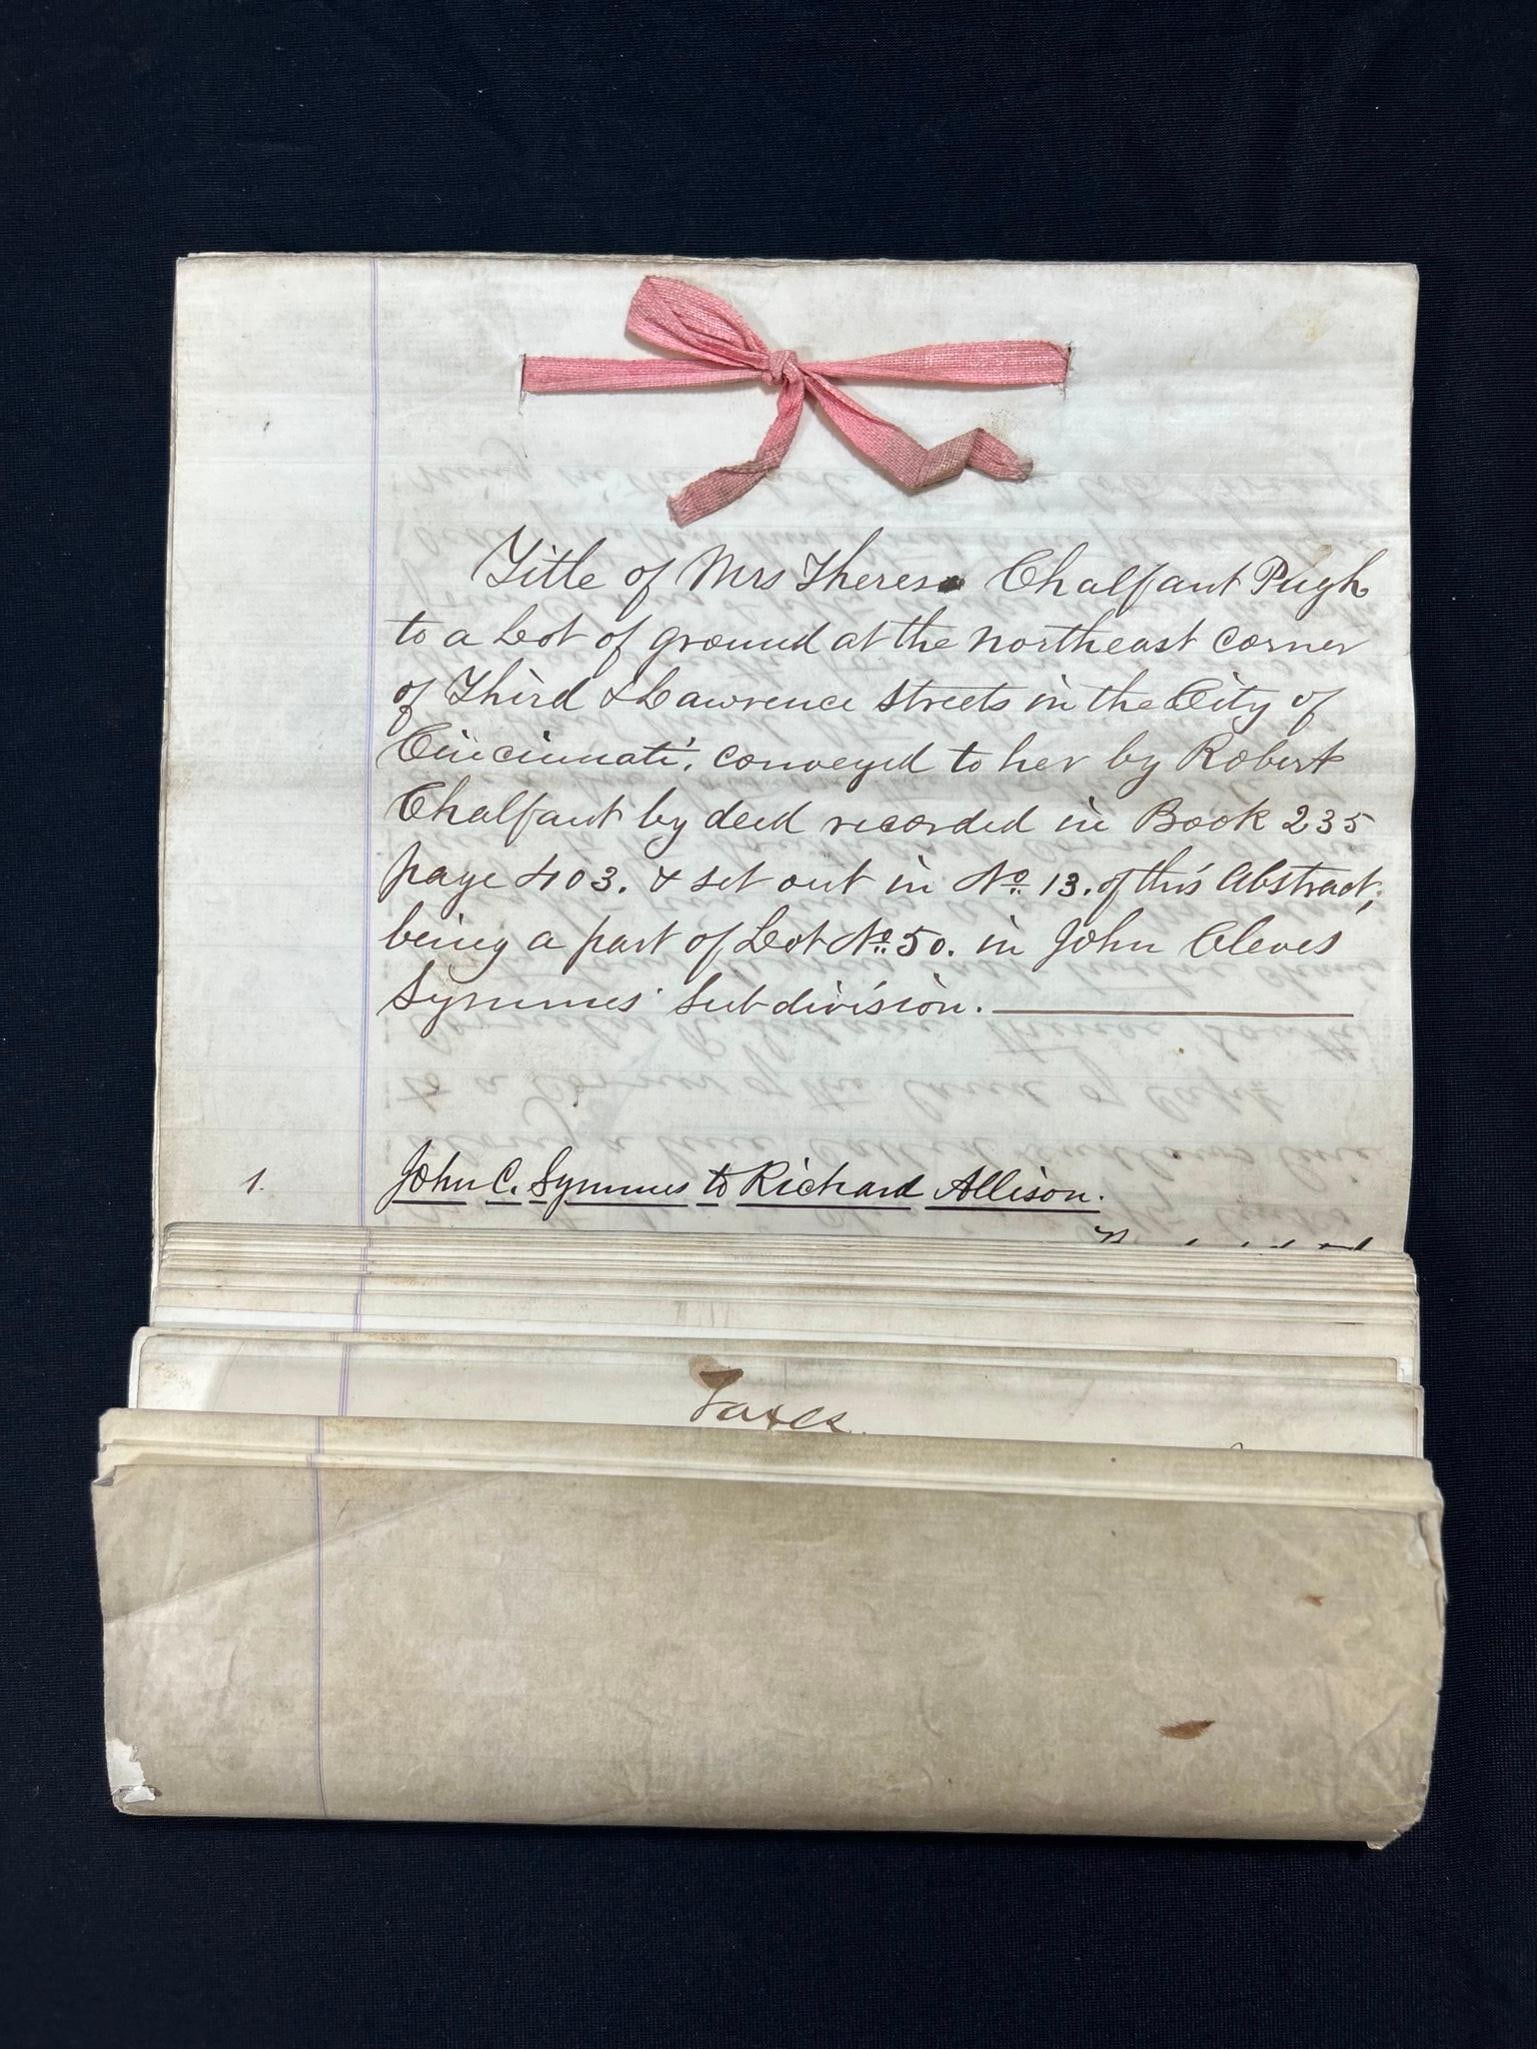 Title of Mrs Theresa Chalfant Pugh
to a Lot of ground at the northeast corner
of Third & Lawrence streets in the City of
Cincinnati, conveyed to her by Robert
Chalfant by deed recorded in Book 235
page 403. & set out in No. 13. of this Abstract;
being a part of Lot No. 50. in John Cleves
Symmes' Subdivision.
1. John C. Symmes to Richard Allison.
Taxes.